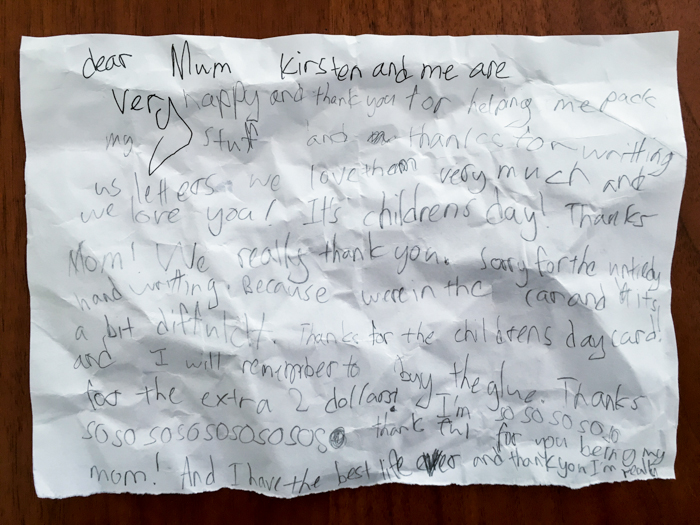 dear Mum Kirsten and me are
very happy and thank you for helping me pack
my stuff and thanks for writting
us letters. we love them very much and
we love you! It's childrens day! Thanks
Mom! We really thank you. Sorry for the untiedy
hand writting. Because were in the car and it its
a bit diffucult. Thanks for the childrens day card!
and I will remember to buy the glue. Thanks
for the extra 2 dollars! I'm so so so so so
so so so so so so so so thankful for you being my
mom! And I have the best life ever and thank you I'm really